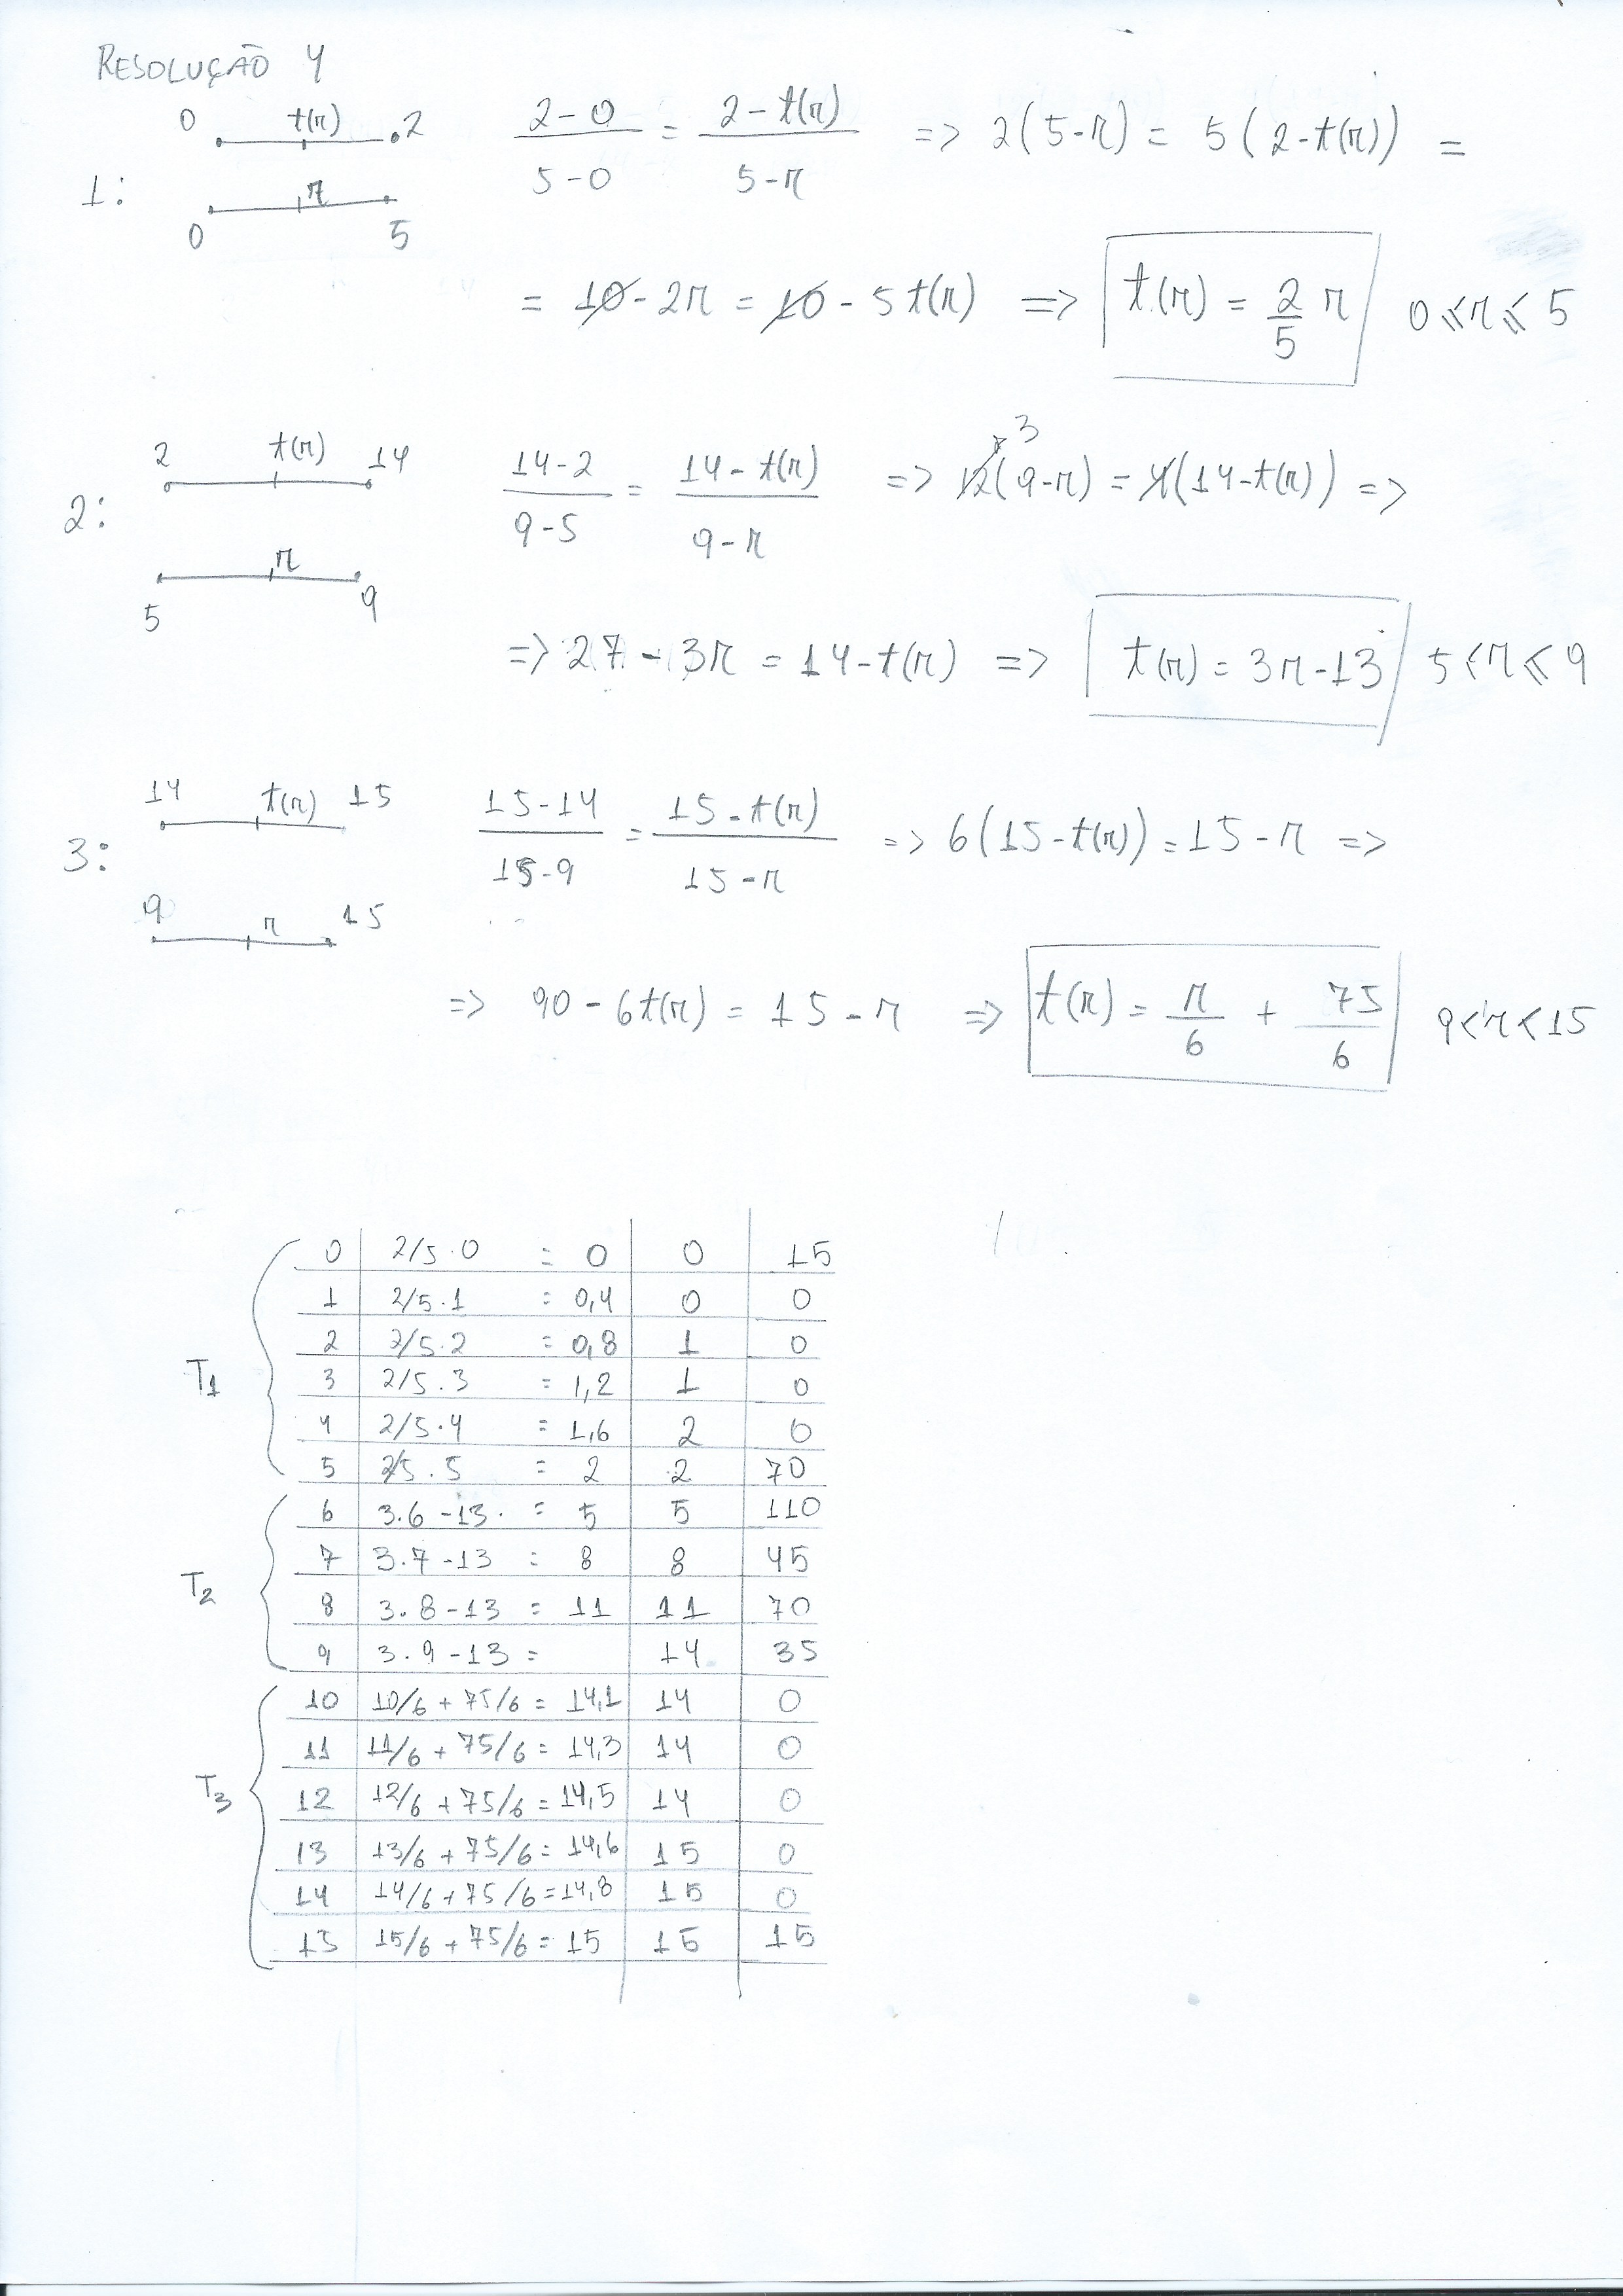 RESOLUÇÃO 4
1:
0 t(r) 2
r
0 5
2-0 / 5-0 = 2-t(r) / 5-r => 2(5-r) = 5(2-t(r)) =
= 10 - 2r = 10 - 5t(r) => t(r) = 2/5 r 0 ⩽ r ⩽ 5
2:
2 t(r) 14
r
5 9
14-2 / 9-5 = 14-t(r) / 9-r => 12 3 (9-r) = 4(14-t(r)) =>
=> 27 - 3r = 14-t(r) => t(r) = 3r-13 5 < r ⩽ 9
3:
14 t(r) 15
9 r 15
15-14 / 15-9 = 15-t(r) / 15-r => 6(15-t(r)) = 15-r =>
=> 90 - 6t(r) = 15-r => t(r) = r/6 + 75/6 9 < r < 15
T1
0 2/5.0 = 0 0 15
1 2/5.1 = 0,4 0 0
2 2/5.2 = 0,8 1 0
3 2/5.3 = 1,2 1 0
4 2/5.4 = 1,6 2 0
5 2/5.5 = 2 2 70
T2
6 3.6-13. = 5 5 110
7 3.7-13 = 8 8 45
8 3.8-13 = 11 11 70
9 3.9-13 = 14 35
T3
10 10/6 + 75/6 = 14,1 14 0
11 11/6 + 75/6 = 14,3 14 0
12 12/6 + 75/6 = 14,5 14 0
13 13/6 + 75/6 = 14,6 15 0
14 14/6 + 75/6 = 14,8 15 0
15 15/6 + 75/6 = 15 15 15